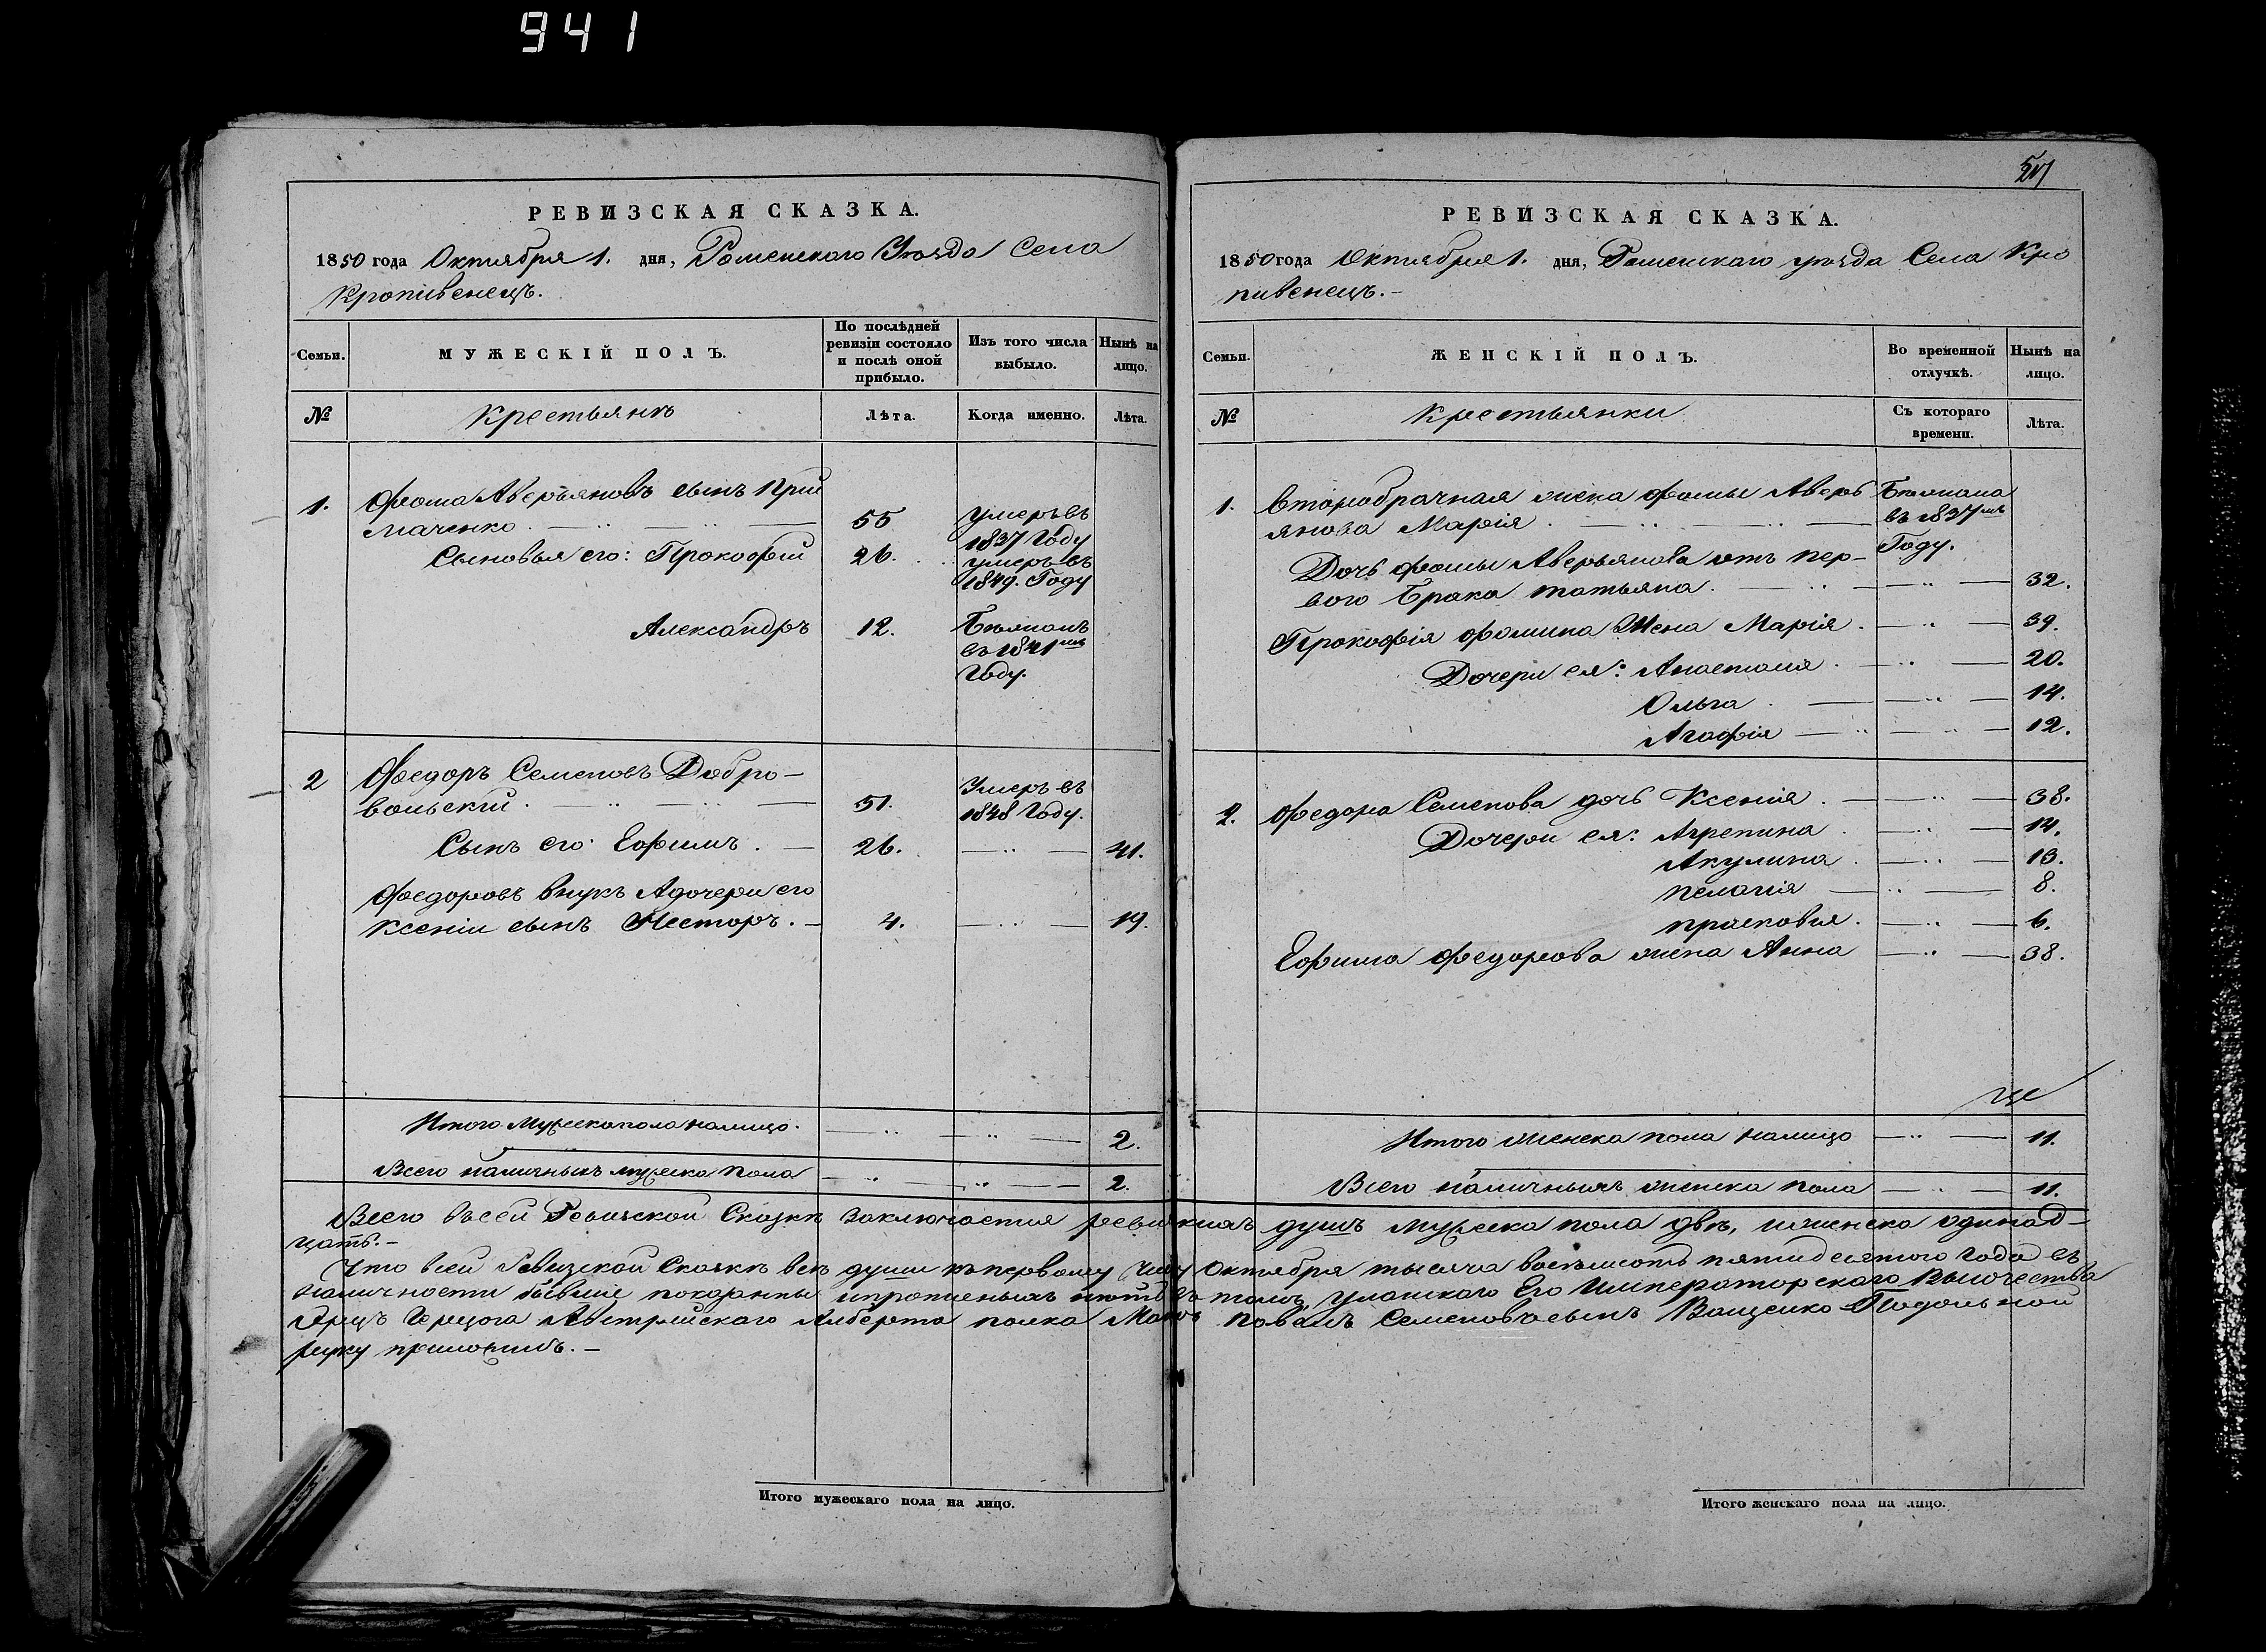 941
РЕВИЗСКАЯ СКАЗКА.
1850 года Октября 1. дня, Роменского Уезда Села
Кропивенецъ.
Семьи.
МУЖЕСКІЙ ПОЛЪ.
По послѣдней
ревизіи состояло
и послѣ оной
прибыло.
Изъ того числа
выбыло.
Нынѣ на
лицо.
№
Крестьянѣ
Лѣта.
Когда именно.
Лѣта.
1.
Фома Аверьяновъ сынъ
маченко.
55
умеръ въ
1837 Году
Сыновья его: Прокофій
26.
умеръ въ
1849. Году
Александръ
12.
Въ 1841мъ
Году.
2
Федоръ Семеновъ Добро-
вольскій.
51.
Умеръ въ
1848 Году.
Сынъ его: Ефимъ.
26.
41.
Федоровъ внукъ а дочери его
Ксеніи сынъ Несторъ.
4.
19.
Итого Мужеска пола налицо.
2.
Всего наличныхъ мужеска пола
2.
Итого мужескаго пола на лицо.
РЕВИЗСКАЯ СКАЗКА.
1850 года Октября 1. дня, Роменскаго уезда Села Кро
пивенецъ.-
Семьи.
ЖЕНСКІЙ ПОЛЪ.
Во временной
отлучкѣ.
Нынѣ на
лицо.
№
Крестьянки
Съ котораго
времени.
Лѣта.
1.
Второбрачная жена Фомы Аверь
янова Марія.
въ 1837мъ
Году.
Дочь Фомы Аверьянова отъ пер-
вого Брака татьяна.
32.
Прокофія Фомина Жена Марія.
39.
Дочери ея: Анастасія.
20.
Ольга.
14.
Агафія
12.
2.
Федора Семенова дочь Ксенія.
38.
Дочери ея: Агрепина
14.
Акулина.
13.
пелагія
8.
прасковия.
6.
Ефима Федорова жена Анна
38.
Итого женска пола налицо
11.
Всего наличныхъ женска пола
11.
Всего въ сей Ревизской Сказкѣ заключается ревизкихъ душъ мужеска пола двѣ, и женска одинад-
цать.-
Что всей Ревизской Сказкѣ всѣ души къ первому Октября тысяча восемьсотъ пятидесятого года въ
наличности бывшие показанны и пропсеныхъ нетъ въ томъ, уланского Его Императорского Высочества
Эрцъ Герцога Австрійскаго Алберта полка Маіоръ Павелъ Семеновъ сынъ Ващенко Подольной
руку приложилъ.-
Итого женскаго пола на лицо.